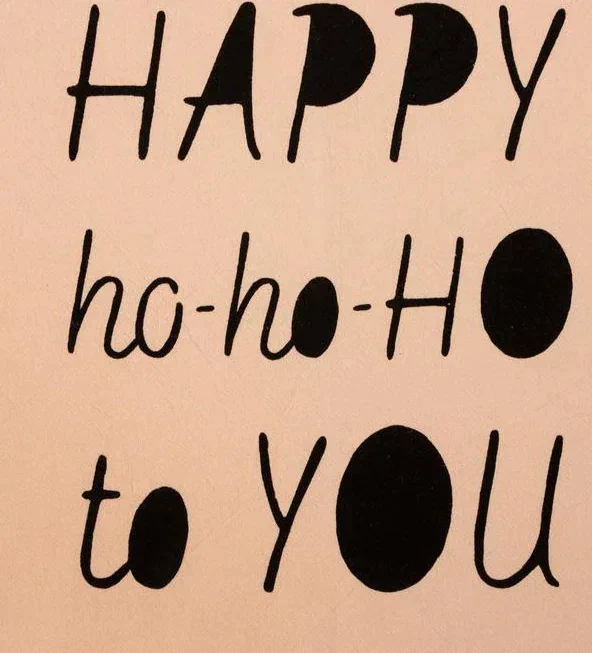 HAPPY
ho-ho-HO
to YOU